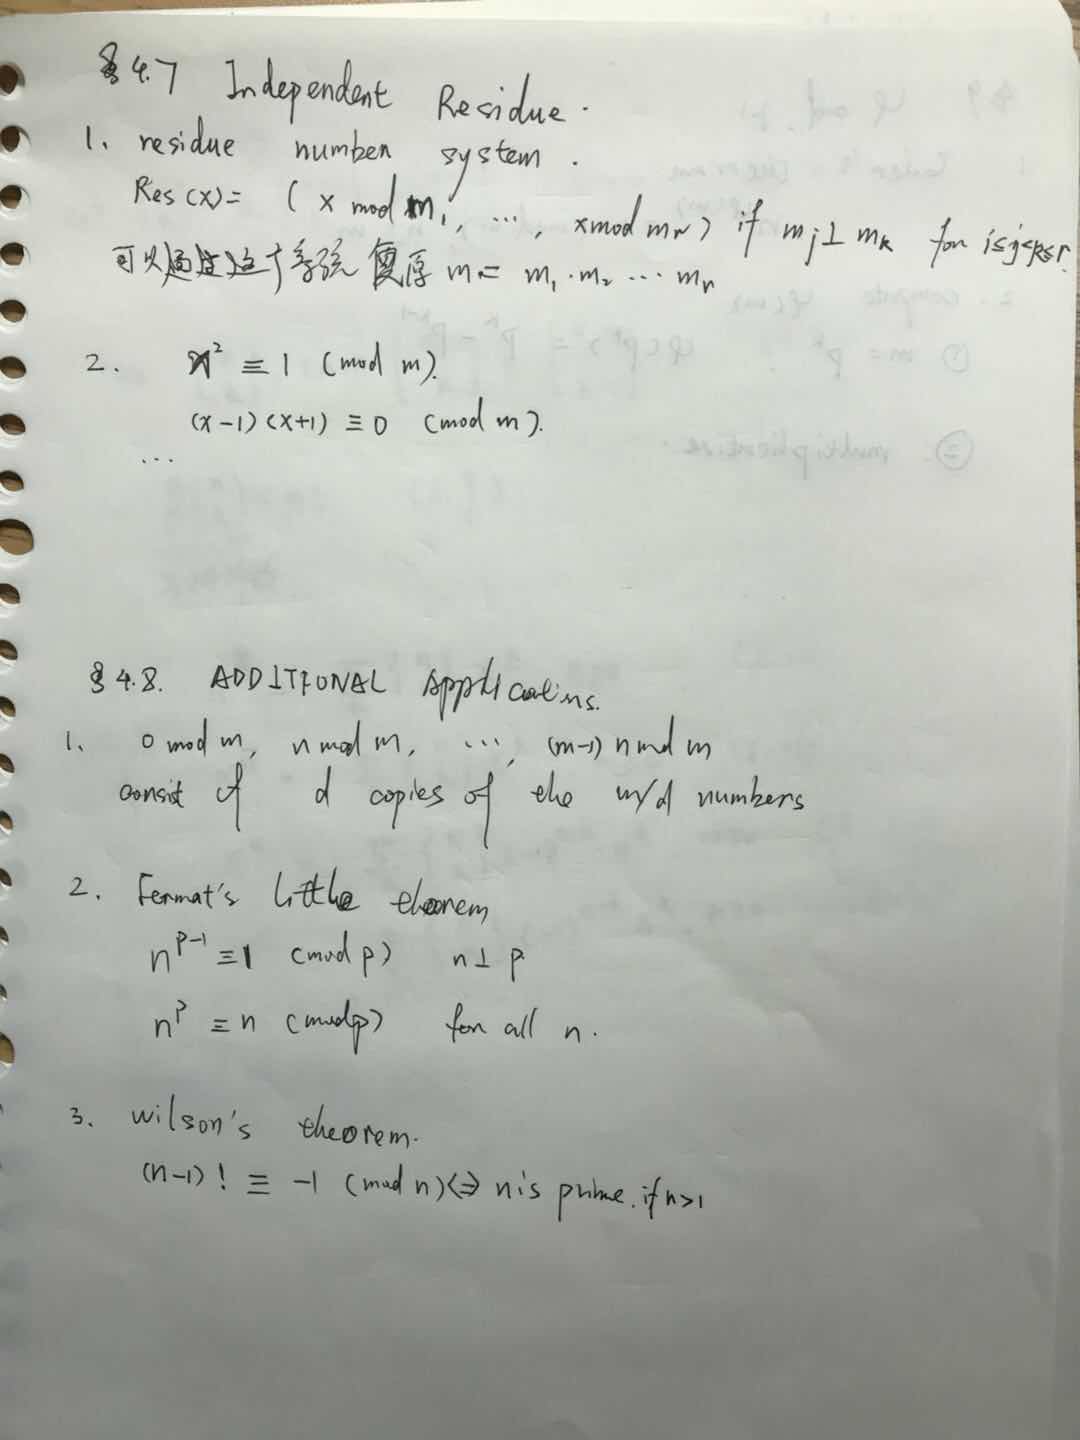 § 4.7 Independent Residue.
1. residue number system.
Res(x) = (x mod m₁, ..., x mod mᵣ) if mⱼ ⊥ mₖ for 1≤j<k≤r.
可以通过这个系统复原 m = m₁·m₂ ... mᵣ
2. x² ≡ 1 (mod m).
(x-1)(x+1) ≡ 0 (mod m).
...
§ 4.8. ADDITIONAL Applications.
1. 0 mod m, n mod m, ..., (m-1) n mod m
consist of d copies of the m/d numbers
2. Fermat's little theorem
nᵖ⁻¹ ≡ 1 (mod p) n ⊥ p
nᵖ ≡ n (mod p) for all n.
3. wilson's theorem.
(n-1)! ≡ -1 (mod n) <=> n is prime. if n>1